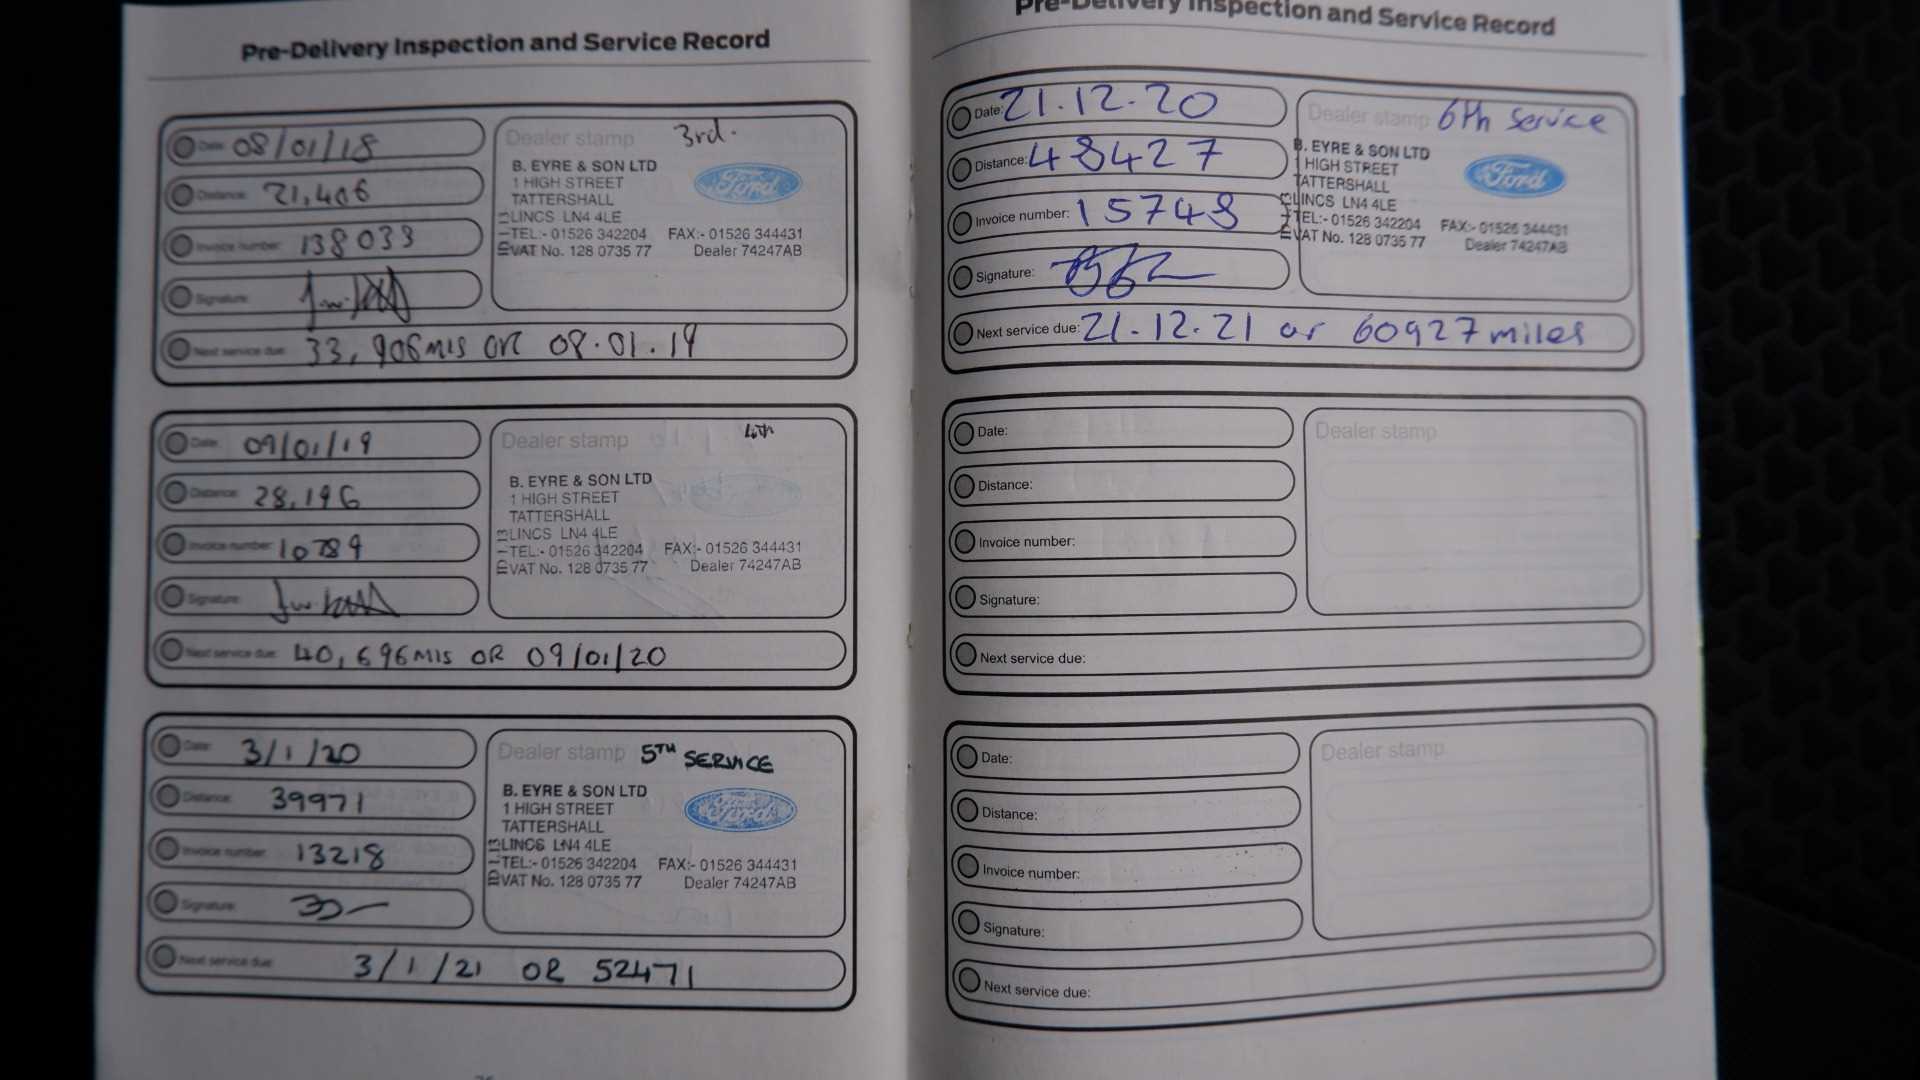 Pre-Delivery Inspection and Service Record
Date: 08/01/18
Distance: 21,406
Invoice number: 138033
Signature:
Next service due: 33,906 MLS OR 08.01.19
Dealer stamp 3rd.
B. EYRE & SON LTD
1 HIGH STREET
TATTERSHALL
LINCS LN4 4LE
TEL:- 01526 342204 FAX:- 01526 344431
VAT No. 128 0735 77 Dealer 74247AB
Ford
Date: 09/01/19
Distance: 28,196
Invoice number: 10789
Signature:
Next service due: 40,696 MLS OR 09/01/20
Dealer stamp 4th
B. EYRE & SON LTD
1 HIGH STREET
TATTERSHALL
LINCS LN4 4LE
TEL:- 01526 342204 FAX:- 01526 344431
VAT No. 128 0735 77 Dealer 74247AB
Date: 3/1/20
Distance: 39971
Invoice number: 13218
Signature:
Next service due: 3/1/21 OR 52471
Dealer stamp 5TH SERVICE
B. EYRE & SON LTD
1 HIGH STREET
TATTERSHALL
LINCS LN4 4LE
TEL:- 01526 342204 FAX:- 01526 344431
VAT No. 128 0735 77 Dealer 74247AB
Ford
Pre-Delivery Inspection and Service Record
Date: 21.12.20
Distance: 48427
Invoice number: 15748
Signature:
Next service due: 21.12.21 or 60927 miles
Dealer stamp 6th Service
B. EYRE & SON LTD
1 HIGH STREET
TATTERSHALL
LINCS LN4 4LE
TEL:- 01526 342204 FAX:- 01526 344431
VAT No. 128 0735 77 Dealer 74247AB
Ford
Date:
Distance:
Invoice number:
Signature:
Next service due:
Dealer stamp
Date:
Distance:
Invoice number:
Signature:
Next service due:
Dealer stamp